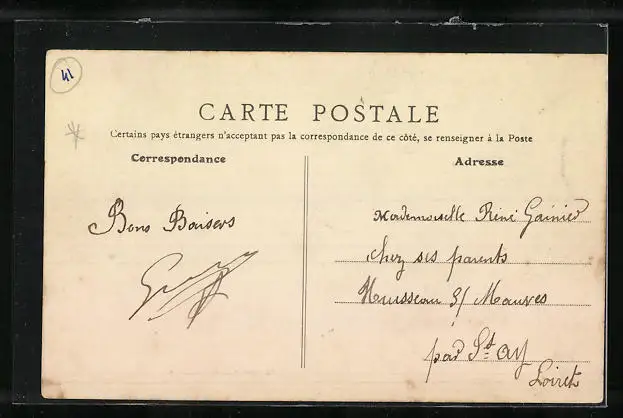 41
CARTE POSTALE
Certains pays étrangers n'acceptant pas la correspondance de ce côté, se renseigner à la Poste
Correspondance
Adresse
Bons Baisers
Mademoiselle Réné
chez ses parents
3/ Mauves
par St Ay
Loiret